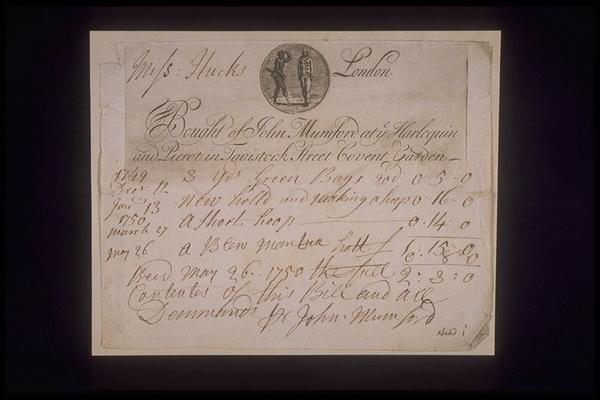 Miss: Hucks London
Bought of John Mumford at ye Harlequin
and Pierot in Tavistock Street Covent Garden
1749
Decr 12 3 Yds Green Bays 20d 0 5 0
Janu 13 new holld and making a hoop 0 16 0
1750
March 27 a short hoop 0 14 0
May 26 a Blew mantua 1 : 15 0
0 8 0
Recd May 26 1750 the full 2 : 3 : 0
Contentes of this Bill and all
Demmands Pr John Mumford